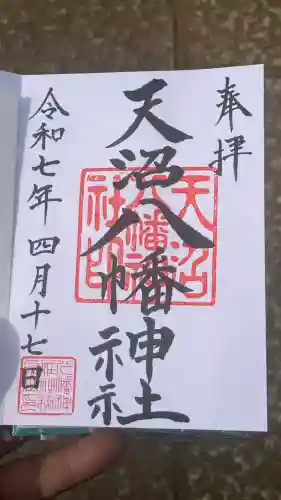 奉拝
天沼八幡神社
令和七年四月十七日
天沼八幡神社印